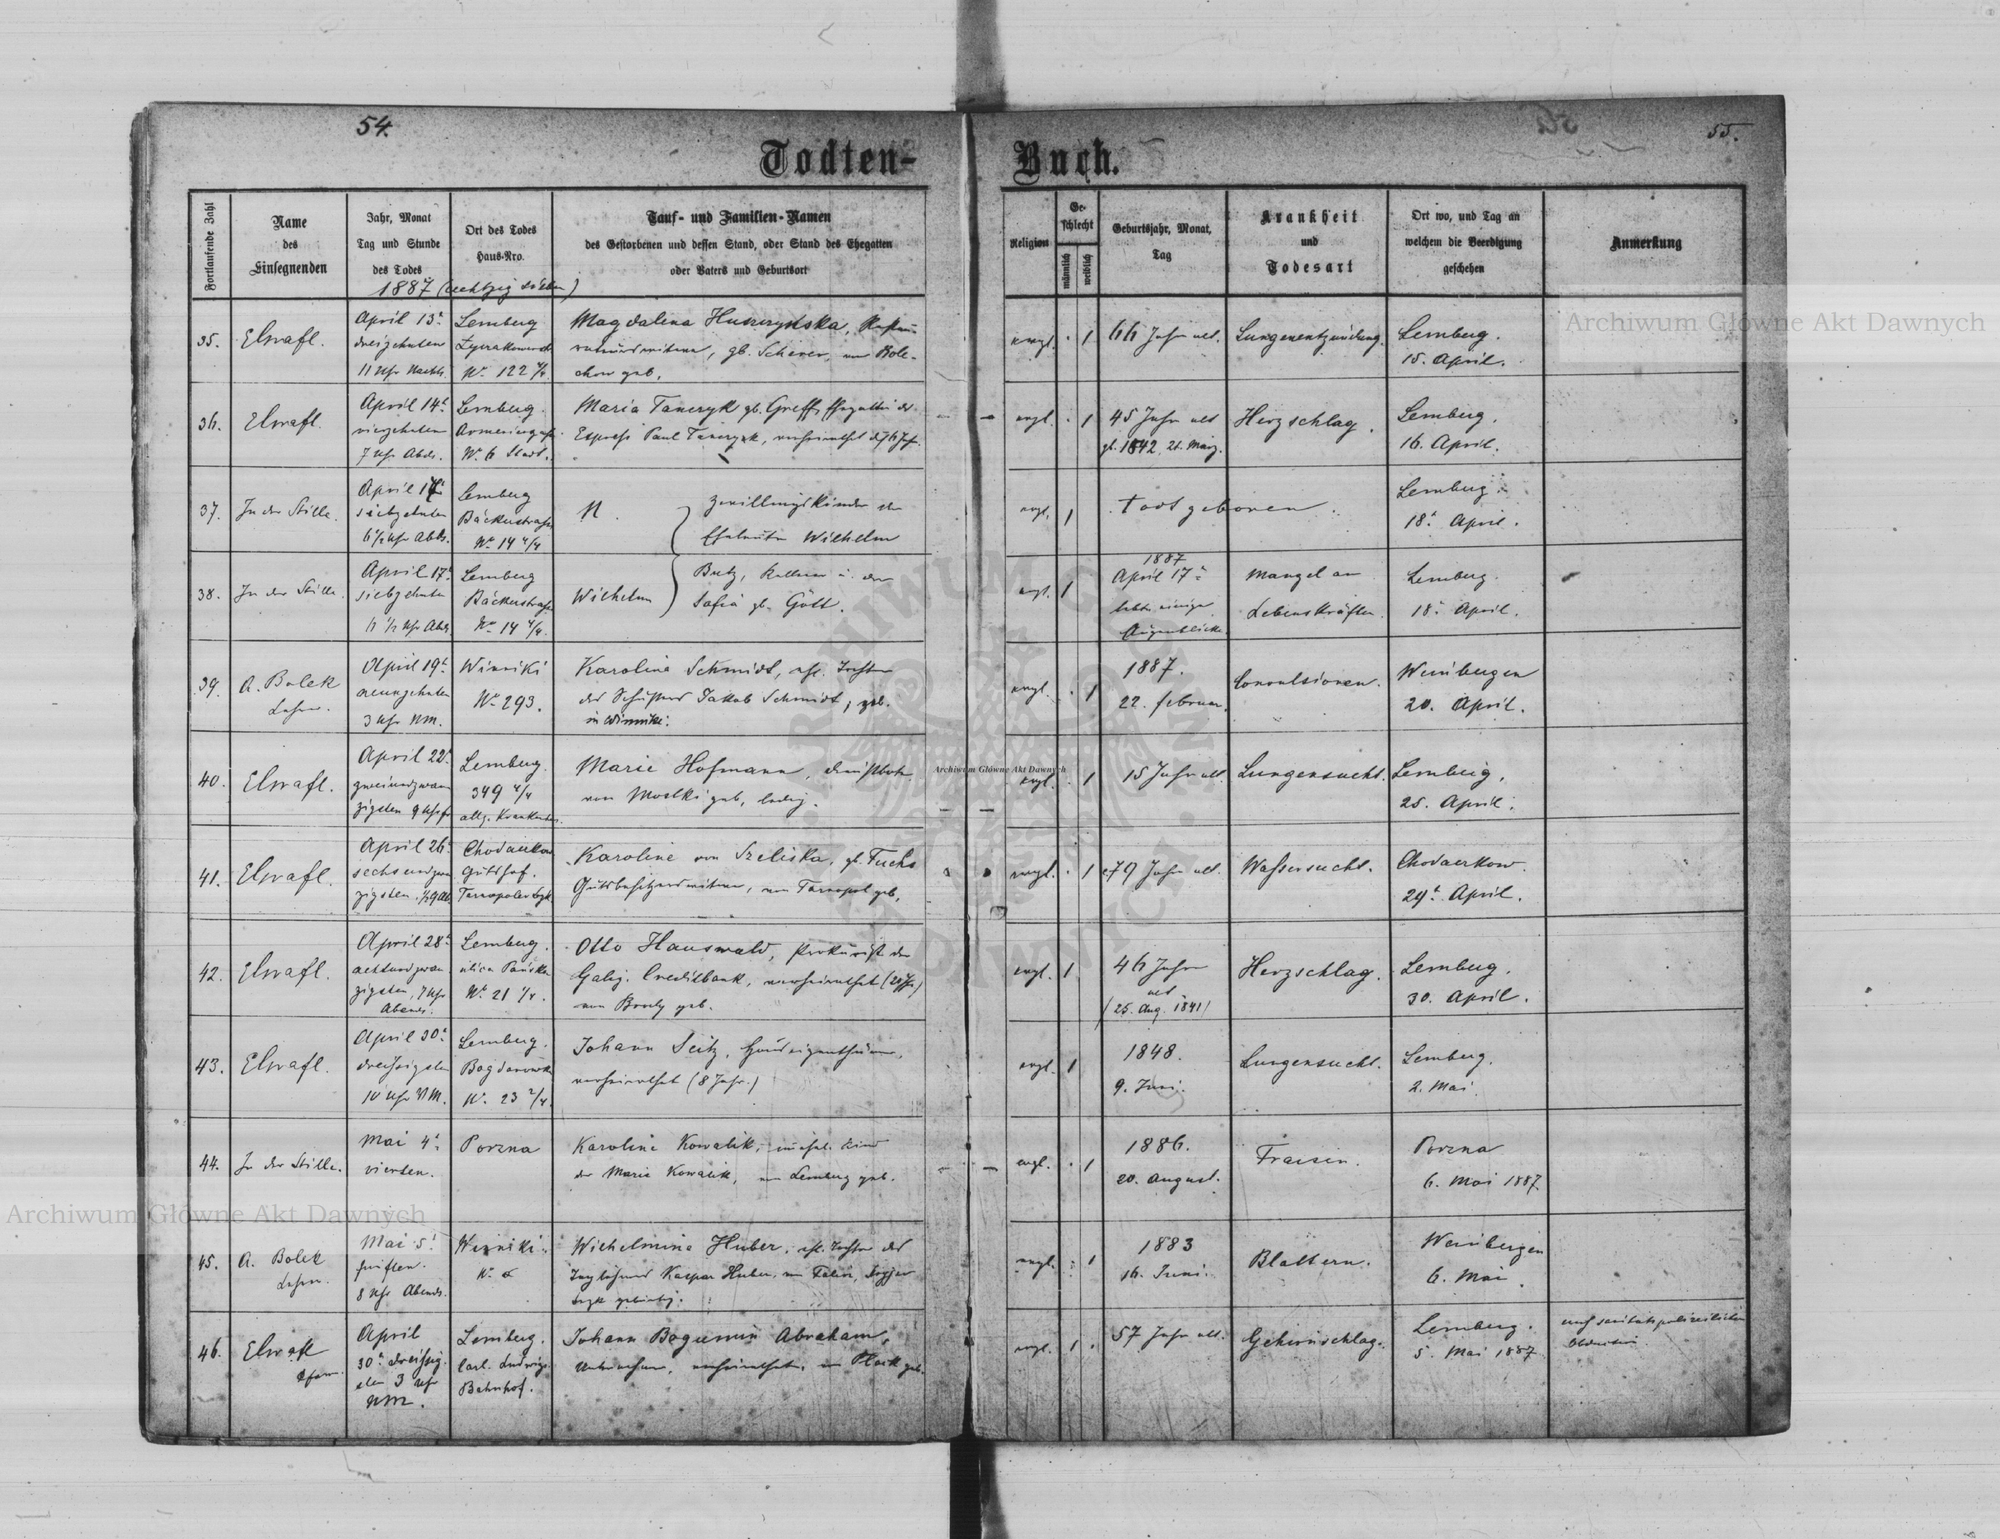 54.
55.
Todten-Buch.
Fortlaufende Zahl
Name
des
Einsegnenden
Jahr, Monat
Tag und Stunde
des Todes
Ort des Todes
Haus-Nro.
Tauf- und Familien-Namen
des Gestorbenen und dessen Stand, oder Stand des Ehegatten
oder Vaters und Geburtsort
Religion
Ge-
schlecht
männlich
weiblich
Geburtsjahr, Monat,
Tag
Krankheit
und
Todesart
Ort wo, und Tag an
welchem die Beerdigung
geschehen
Anmerkung
1887 (achtzig sieben)
35.
April 13t
dreizehnten
11 Uhr Nachts.
Lemberg
No 122 4/4
Magdalena
gb. Scherer, von Bole-
chow geb.
evgl. 1
66 Jahre alt.
Lungenentzündung.
Lemberg.
15. April.
36.
April 14t
vierzehnten
7 Uhr Abds.
Lemberg.
No 6 Stadt.
Maria Tanczyk gb. Greff, Ehegattin des
Paul Tanczyk, verheirathet
evgl. 1
45 Jahre alt
gb. 1842, 21. März.
Herzschlag.
Lemberg.
16. April.
37.
In der Stille.
April 17t
siebzehnten
6 1/2 Uhr Abds.
Lemberg
Bäckerstrasse
No 14 4/4
N.
Zwillingskinder der
Eheleute Wilhelm
evgl. 1
todtgeboren.
Lemberg.
18t April.
38.
In der Stille.
April 17t
siebzehnten
1/2 Uhr Abds.
Lemberg
Bäckerstrasse
No 14 4/4.
Wilhelm
Butz, Kellner u. der
Sofia gb. Gött.
evgl. 1
1887
April 17t
lebte einige
Augenblicke.
Mangel an
Lebenskräften.
Lemberg.
18t April.
39.
A. Bolek
Lehrer.
April 19t
neunzehnten
3 Uhr NM.
Winniki
No 293.
Karoline Schmidt, ehl. Tochter
des Jakob Schmidt, geb.
in Winniki.
evgl. 1
1887.
22. Februar.
Convulsionen.
Weinbergen
20. April.
40.
April 22t
zweiundzwan
zigsten 9 Uhr fr
Lemberg.
349 4/4
allg. Krankenhs.
Marie Hofmann, Dienstbote
von Mostki geb, ledig.
evgl. 1
15 Jahre alt.
Lungensucht.
Lemberg.
25. April.
41.
April 26t
sechsundzwan
zigsten
Chodaczkow
Gutshof.
Karoline von Szeliska, gb. Fuchs
Gutsbesitzerswitwe, von Tarnopol geb.
evgl. 1
79 Jahre alt.
Wassersucht.
Chodaczkow.
29t April.
42.
April 28t
achtundzwan
zigsten, 7 Uhr
Abends.
Lemberg.
ulica Pańska
No 21 1/4.
Otto Hauswald, Prokurist der
Galiz. Creditbank, verheirathet
von Brody geb.
evgl. 1
46 Jahre
alt
(25. Aug. 1841)
Herzschlag.
Lemberg.
30. April.
43.
April 30t
dreissigsten
10 Uhr VM.
Lemberg.
Bogdanowka
No. 23 2/4.
Johann Seitz, Hauseigenthümer,
verheirathet (8 Jahr.)
evgl. 1
1848.
9. Juni.
Lungensucht.
Lemberg.
2. Mai.
44.
In der Stille.
Mai 4t
vierten.
Porzna
Karoline Kowalik, unehel. Kind
der Marie Kowalik, von Lemberg geb.
evgl. 1
1886.
20. August.
Fraisen.
Porzna
6. Mai 1887.
45.
A. Bolek
Lehrer.
Mai 5t
fünften.
8 Uhr Abends.
Winniki.
Wilhelmine Huber, ehl. Tochter des
Taglöhners Kaspar Huber, von
evgl. 1
1883
16. Juni.
Blattern.
Weinbergen
6. Mai.
46.
April
30t dreissig-
sten 3 Uhr
NM.
Lemberg.
Carl. Ludwigs-
Bahnhof.
Johann Bogumin Abraham,
verheirathet, von
evgl. 1
57 Jahre alt.
Gehirnschlag.
Lemberg.
5. Mai 1887
sanitätspolizeilicher
Obduction.
Archiwum Główne Akt Dawnych
Archiwum Główne Akt Dawnych
Archiwum Główne Akt Dawnych